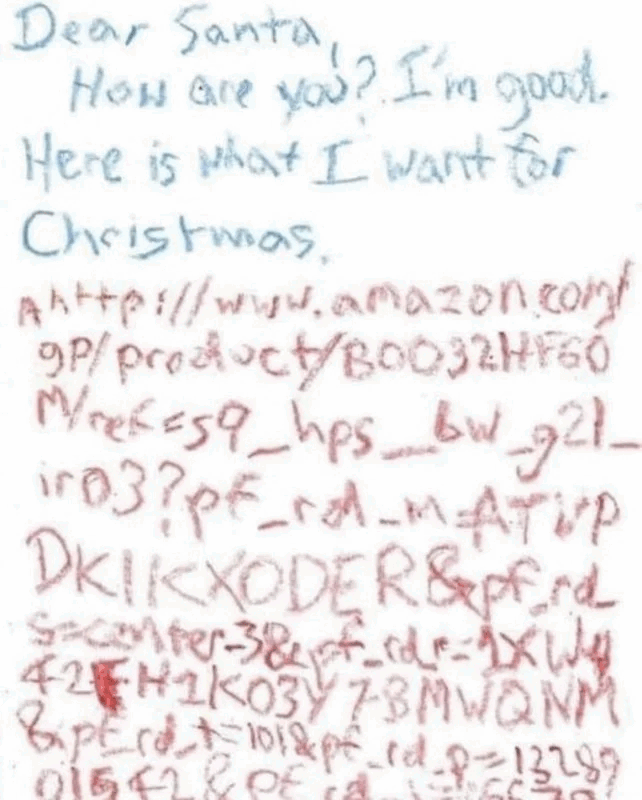 Dear Santa,
How are you? I'm good.
Here is what I want for
Christmas.
Ahttp://www.amazon.com/
gp/product/B0032HF60
M/ref=s9_hps_bw_g21_
ir03?pf_rd_m=ATVP
DKIKX0DER&pf_rd
s=center-3&pf_rd_r=1XWY
42FH1K03Y7BMWQNM
&pf_rd_t=101&pf_rd_p=13289